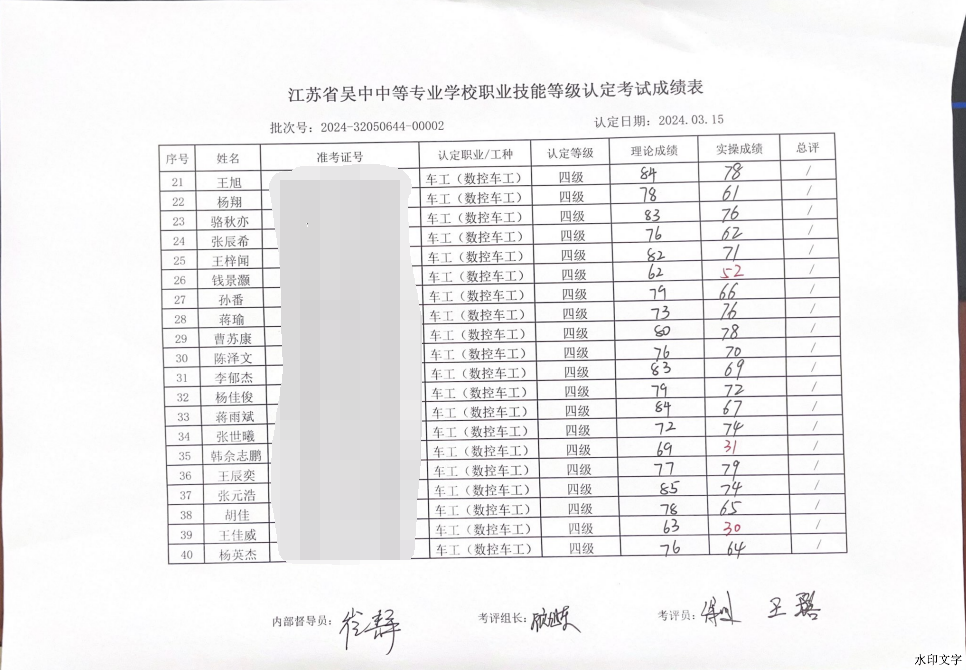 江苏省吴中中等专业学校职业技能等级认定考试成绩表
批次号：2024-32050644-00002 认定日期：2024.03.15
序号 姓名 准考证号 认定职业/工种 认定等级 理论成绩 实操成绩 总评
21 王旭 车工（数控车工） 四级 84 78 /
22 杨翔 车工（数控车工） 四级 78 61 /
23 骆秋亦 车工（数控车工） 四级 83 76 /
24 张辰希 车工（数控车工） 四级 76 62 /
25 王梓闻 车工（数控车工） 四级 82 71 /
26 钱景灏 车工（数控车工） 四级 62 52 /
27 孙番 车工（数控车工） 四级 79 66 /
28 蒋瑜 车工（数控车工） 四级 73 76 /
29 曹苏康 车工（数控车工） 四级 80 78 /
30 陈泽文 车工（数控车工） 四级 76 70 /
31 李郁杰 车工（数控车工） 四级 83 69 /
32 杨佳俊 车工（数控车工） 四级 79 72 /
33 蒋雨斌 车工（数控车工） 四级 84 67 /
34 张世曦 车工（数控车工） 四级 72 74 /
35 韩佘志鹏 车工（数控车工） 四级 69 31 /
36 王辰奕 车工（数控车工） 四级 77 79 /
37 张元浩 车工（数控车工） 四级 85 74 /
38 胡佳 车工（数控车工） 四级 78 65 /
39 王佳威 车工（数控车工） 四级 63 30 /
40 杨英杰 车工（数控车工） 四级 76 64 /
内部督导员： 考评组长： 考评员： 王
水印文字